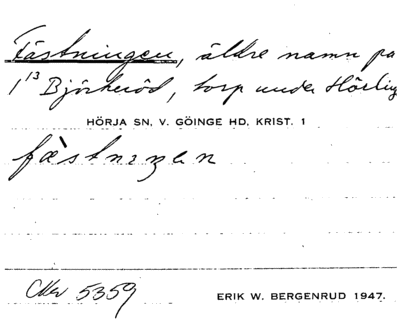 Fästningen, äldre namn på
1¹³ Björkeröd, torp under Hörlig
HÖRJA SN, V. GÖINGE HD, KRIST. 1
fæ̀stnıŋən
5359
ERIK W. BERGENRUD 1947.